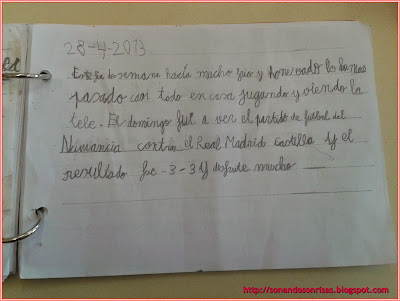 28-4-2013
Este fin de semana hacía mucho frio y ha nevado lo hemos
pasado casi todo en casa jugando y viendo la
tele. El domingo fui a ver el partido de futbol del
Numancia contra el Real Madrid castilla y el
resultado fue -3-3 y disfrute mucho
http://sonandosonrisas.blogspot.com